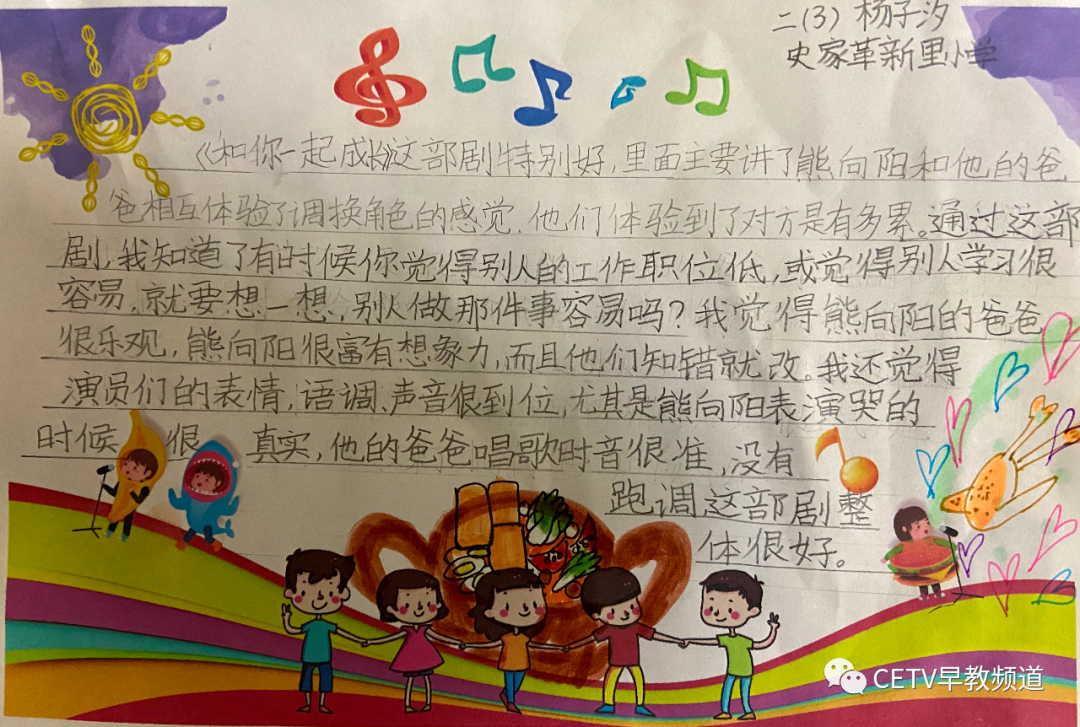 二(3) 杨子汐
史家革新里小学
《和你一起成长》这部剧特别好,里面主要讲了熊向阳和他的爸
爸相互体验了调换角色的感觉,他们体验到了对方是有多累。通过这部
剧,我知道了有时候你觉得别人的工作职位低,或觉得别人学习很
容易,就要想一想,别人做那件事容易吗?我觉得熊向阳的爸爸
很乐观,熊向阳很富有想象力,而且他们知错就改。我还觉得
演员们的表情,语调、声音很到位,尤其是熊向阳表演哭的
时候很真实,他的爸爸唱歌时音很准,没有
跑调这部剧整
体很好。
CETV早教频道